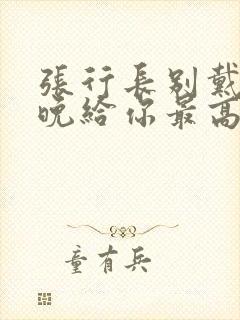 張行長別戴
晚給你最高
童有兵